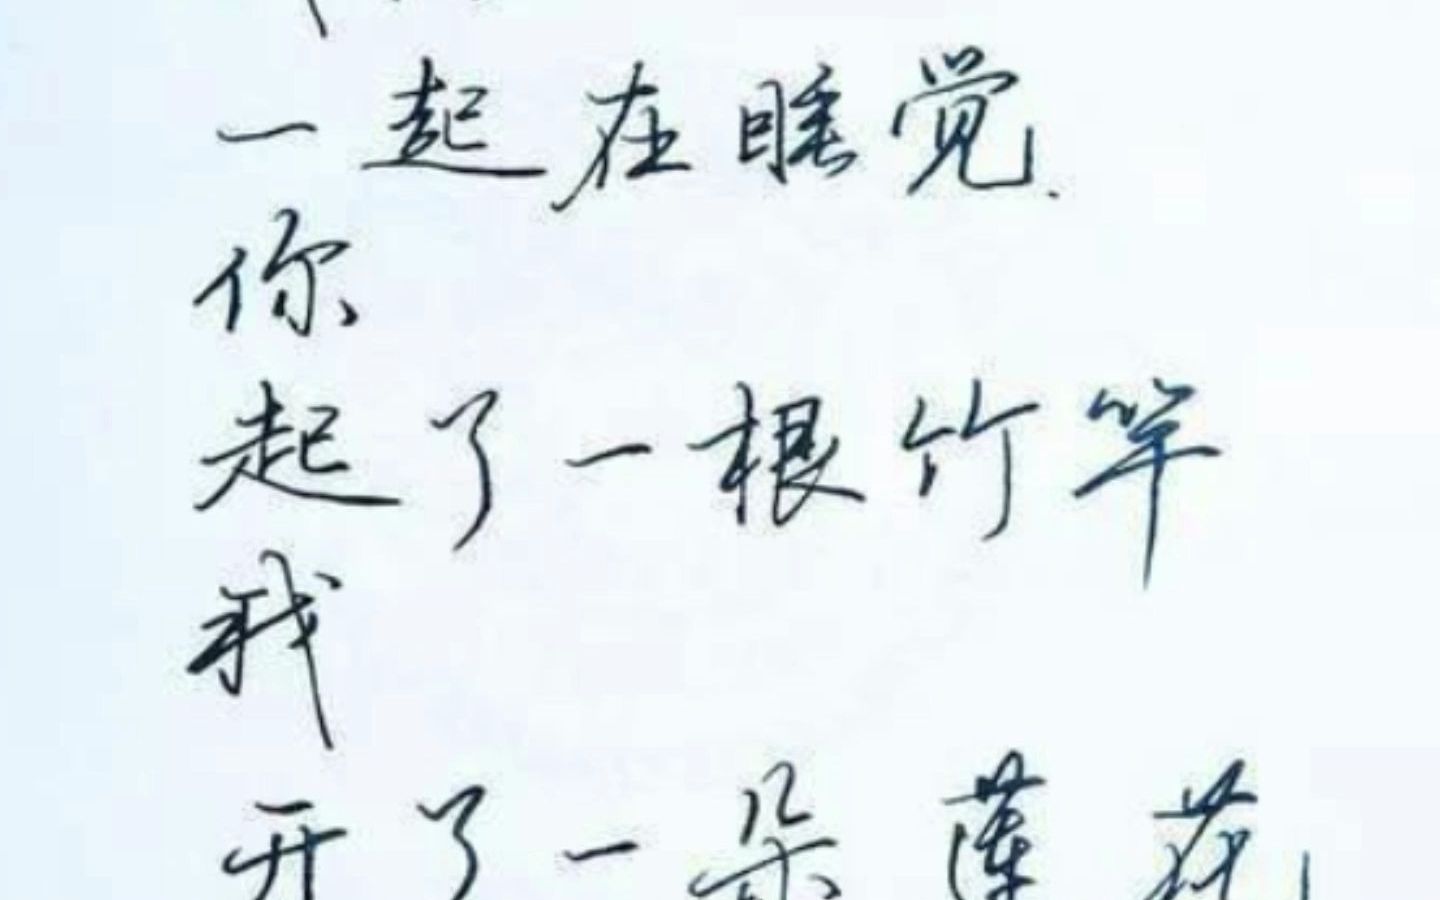 一起在睡觉.
你
起了一根竹竿
我
开了一朵莲花